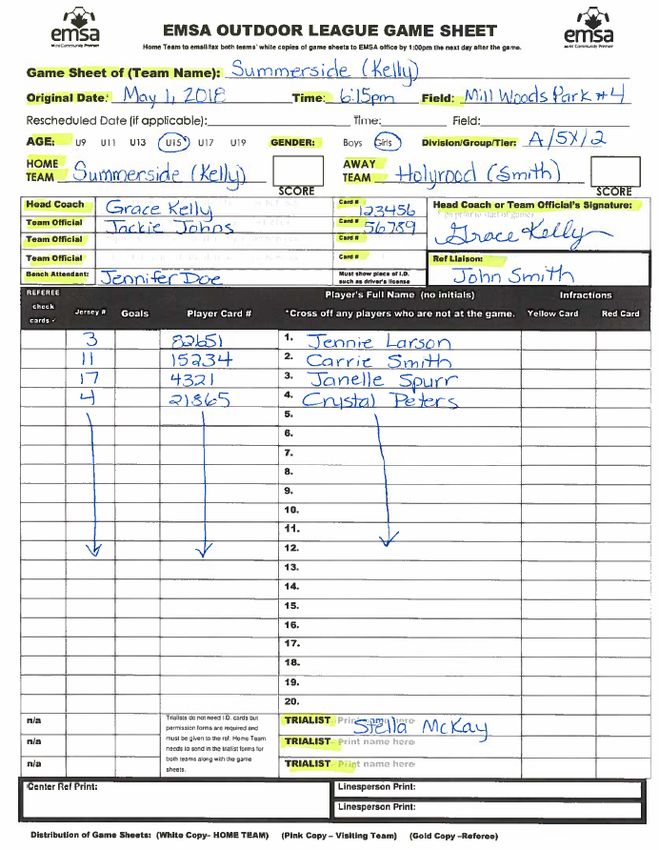 emsa
EMSA OUTDOOR LEAGUE GAME SHEET
emsa
Home Team to email/fax both teams' white copies of game sheets to EMSA office by 1:00pm the next day after the game.
Game Sheet of (Team Name): Summerside (Kelly)
Original Date: May 1, 2018 Time: 6:15pm Field: Mill Woods Park #4
Rescheduled Date (if applicable): Time: Field:
AGE: U9 U11 U13 U15 U17 U19 GENDER: Boys Girls Division/Group/Tier: A/5X/2
HOME TEAM Summerside (Kelly) SCORE AWAY TEAM Holyrood (Smith) SCORE
Head Coach Grace Kelly Card # 123456 Head Coach or Team Official's Signature:
Team Official Jackie Johns Card # 56789 Grace Kelly
Team Official Card #
Team Official Card # Ref Liaison:
Bench Attendant: Jennifer Doe Must show piece of I.D. such as driver's license John Smith
REFEREE check cards ✓ Jersey # Goals Player Card # Player's Full Name (no initials) Infractions
*Cross off any players who are not at the game. Yellow Card Red Card
3 82651 1. Jennie Larson
11 15234 2. Carrie Smith
17 4321 3. Janelle Spurr
4 21865 4. Crystal Peters
5.
6.
7.
8.
9.
10.
11.
12.
13.
14.
15.
16.
17.
18.
19.
20.
n/a Trialists do not need I.D. cards but permission forms are required and must be given to the ref. Home Team needs to send in the trialist forms for both teams along with the game sheets. TRIALIST Print name here Stella McKay
n/a TRIALIST Print name here
n/a TRIALIST Print name here
Center Ref Print: Linesperson Print:
Linesperson Print:
Distribution of Game Sheets: (White Copy- HOME TEAM) (Pink Copy – Visiting Team) (Gold Copy –Referee)